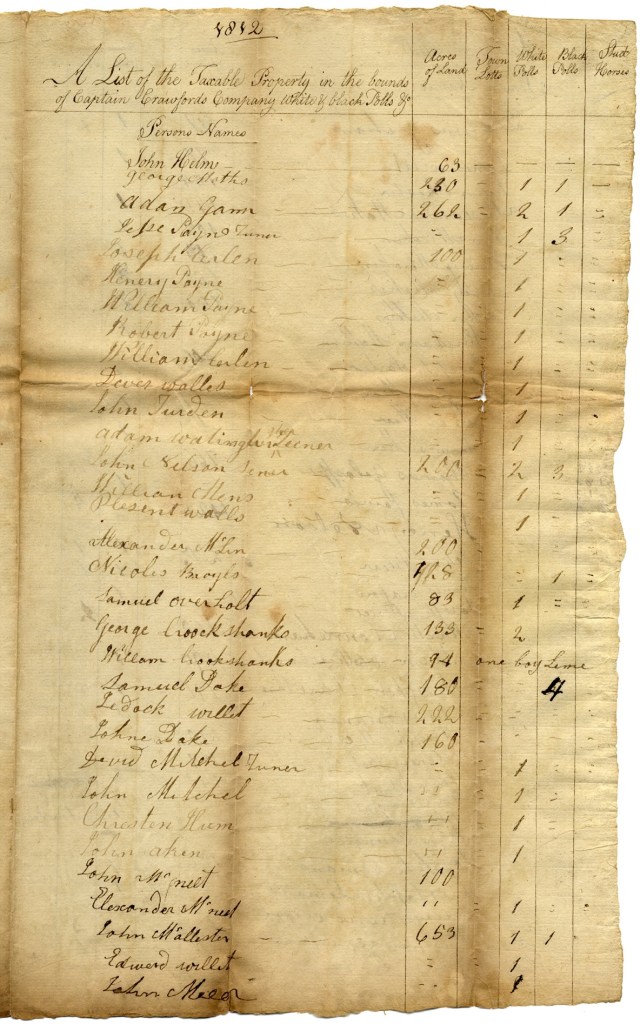 1812
A List of the Taxable Property in the bounds
of Captain Crawfords Company White & black Polls &c
Acres of Land Town Lotts White Polls Black Polls Stud Horses
Persons Names
John Helms — 63 — — — —
George Maths 230 1 1 —
Adan Gann — 262 = 2 1 =
Jesse Payne Juner = 1 3
Joseph 100 1
Henery Payne = = 1 -
William Payne = = 1
Robert Payne = = 1
William = 1
walles 1
John Turden - 1
Adam 1
John Nelson Sener 200 = 2 3
William Mens = = 1 =
Present walls 1
Alexander McLin 200
Nicoles Broyls 928 1 =
Samuel Overholt 83 1 =
George Croockshanks 133 = 2
William Crookshanks 94 one boy Lime
Samuel Dake 180 4
Zedock willet 222
Johne Dake 160
David Mitchel Juner = 1
John Mitchel " = 1 =
Chresten Hum " 1
John aken " = 1
John McNeet 100
Elexander McNeet " = 1 =
John McAllester — 653 = 1 1
Edward willet = = 1
John = 1